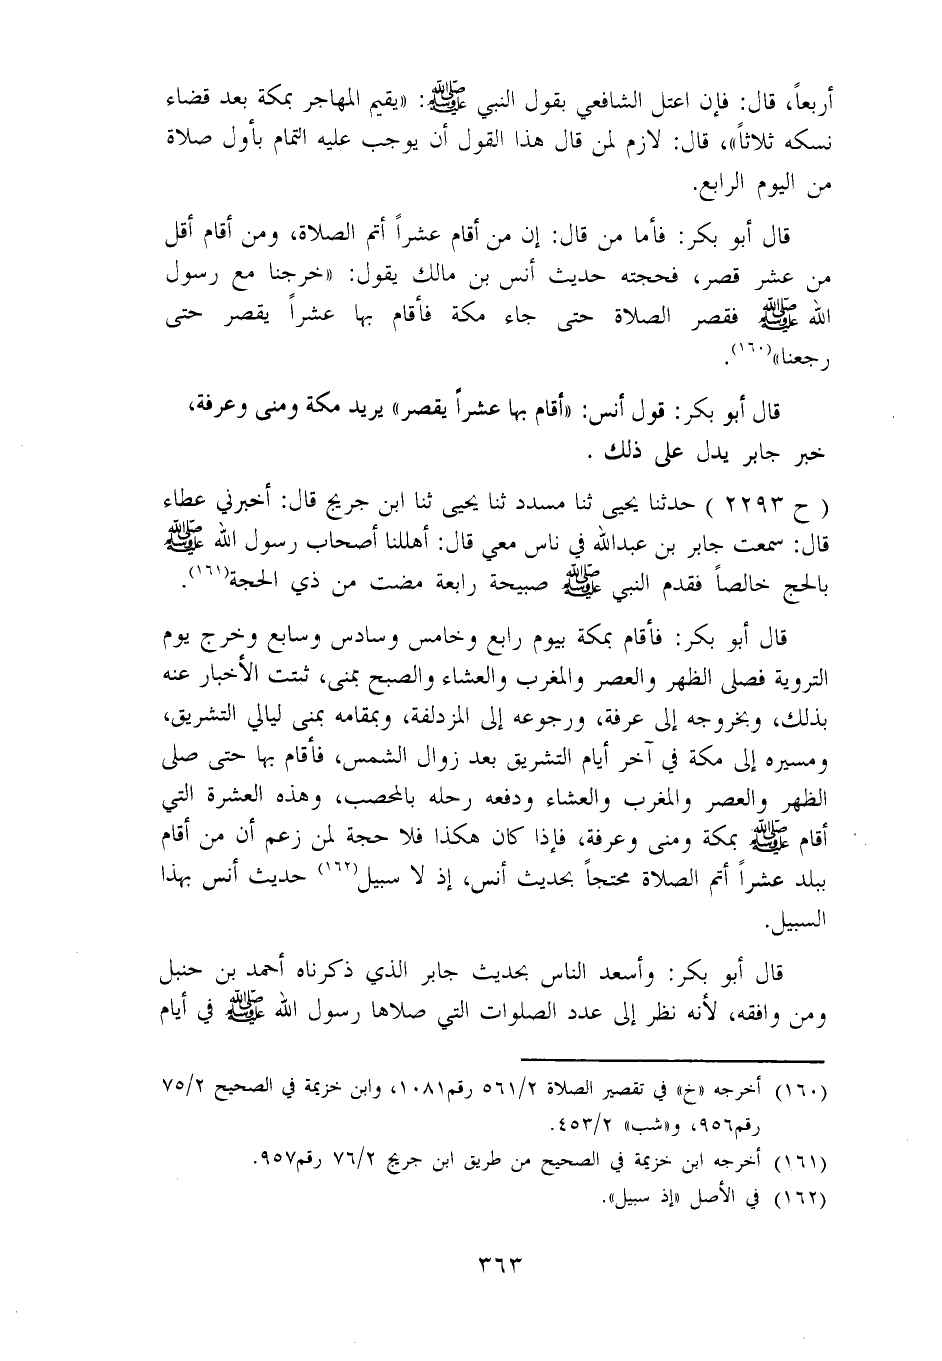 أربعاً، قال: فإن اعتل الشافعي بقول النبي ﷺ: «يقيم المهاجر بمكة بعد قضاء
نسكه ثلاثاً»، قال: لازم لمن قال هذا القول أن يوجب عليه التمام بأول صلاة
من اليوم الرابع.
قال أبو بكر: فأما من قال: إن من أقام عشراً أتم الصلاة، ومن أقام أقل
من عشر قصر، فحجته حديث أنس بن مالك يقول: «خرجنا مع رسول
الله ﷺ فقصر الصلاة حتى جاء مكة فأقام بها عشراً يقصر حتى
رجعنا»(١٦٠).
قال أبو بكر: قول أنس: «أقام بها عشراً يقصر» يريد مكة ومنى وعرفة،
خبر جابر يدل على ذلك .
( ح ٢٢٩٣ ) حدثنا يحيى ثنا مسدد ثنا يحيى ثنا ابن جريج قال: أخبرني عطاء
قال: سمعت جابر بن عبدالله في ناس معي قال: أهللنا أصحاب رسول الله ﷺ
بالحج خالصاً فقدم النبي ﷺ صبيحة رابعة مضت من ذي الحجة(١٦١).
قال أبو بكر: فأقام بمكة بيوم رابع وخامس وسادس وسابع وخرج يوم
التروية فصلى الظهر والعصر والمغرب والعشاء والصبح بمنى، ثبتت الأخبار عنه
بذلك، وبخروجه إلى عرفة، ورجوعه إلى المزدلفة، وبمقامه بمنى ليالي التشريق،
ومسيره إلى مكة في آخر أيام التشريق بعد زوال الشمس، فأقام بها حتى صلى
الظهر والعصر والمغرب والعشاء ودفعه رحله بالمحصب، وهذه العشرة التي
أقام ﷺ بمكة ومنى وعرفة، فإذا كان هكذا فلا حجة لمن زعم أن من أقام
ببلد عشراً أتم الصلاة محتجاً بحديث أنس، إذ لا سبيل(١٦٢) حديث أنس بهذا
السبيل.
قال أبو بكر: وأسعد الناس بحديث جابر الذي ذكرناه أحمد بن حنبل
ومن وافقه، لأنه نظر إلى عدد الصلوات التي صلاها رسول الله ﷺ في أيام
(١٦٠) أخرجه «خ» في تقصير الصلاة ٥٦١/٢ رقم١٠٨١، وابن خزيمة في الصحيح ٧٥/٢
رقم٩٥٦، و«شب» ٤٥٣/٢.
(١٦١) أخرجه ابن خزيمة في الصحيح من طريق ابن جريج ٧٦/٢ رقم٩٥٧.
(١٦٢) في الأصل «إذ سبيل».
٣٦٣